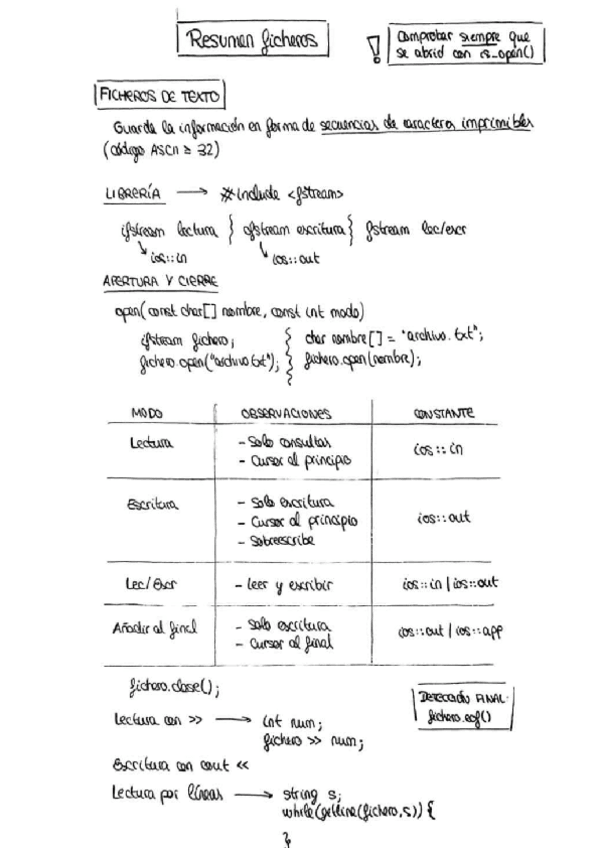 Resumen ficheros
! Comprobar siempre que
se abrió con is_open()
FICHEROS DE TEXTO
Guarda la información en forma de secuencias de caracteres imprimibles
(código ASCII ≥ 32)
LIBRERÍA → #include <fstream>
ifstream lectura } ofstream escritura } fstream lec/escr
ios::in ios::out
APERTURA Y CIERRE
open(const char[] nombre, const int modo)
ifstream fichero; char nombre[] = "archivo.txt";
fichero.open("archivo.txt"); fichero.open(nombre);
MODO OBSERVACIONES CONSTANTE
Lectura - Solo consultas ios::in
- Cursor al principio
Escritura - Solo escritura ios::out
- Cursor al principio
- Sobreescribe
Lec/Escr - leer y escribir ios::in | ios::out
Añadir al final - Solo escritura ios::out | ios::app
- Cursor al final
fichero.close();
DETECCIÓN FINAL:
fichero.eof()
Lectura con >> → int num;
fichero >> num;
Escritura con cout <<
Lectura por líneas → string s;
while(getline(fichero,s)) {
}